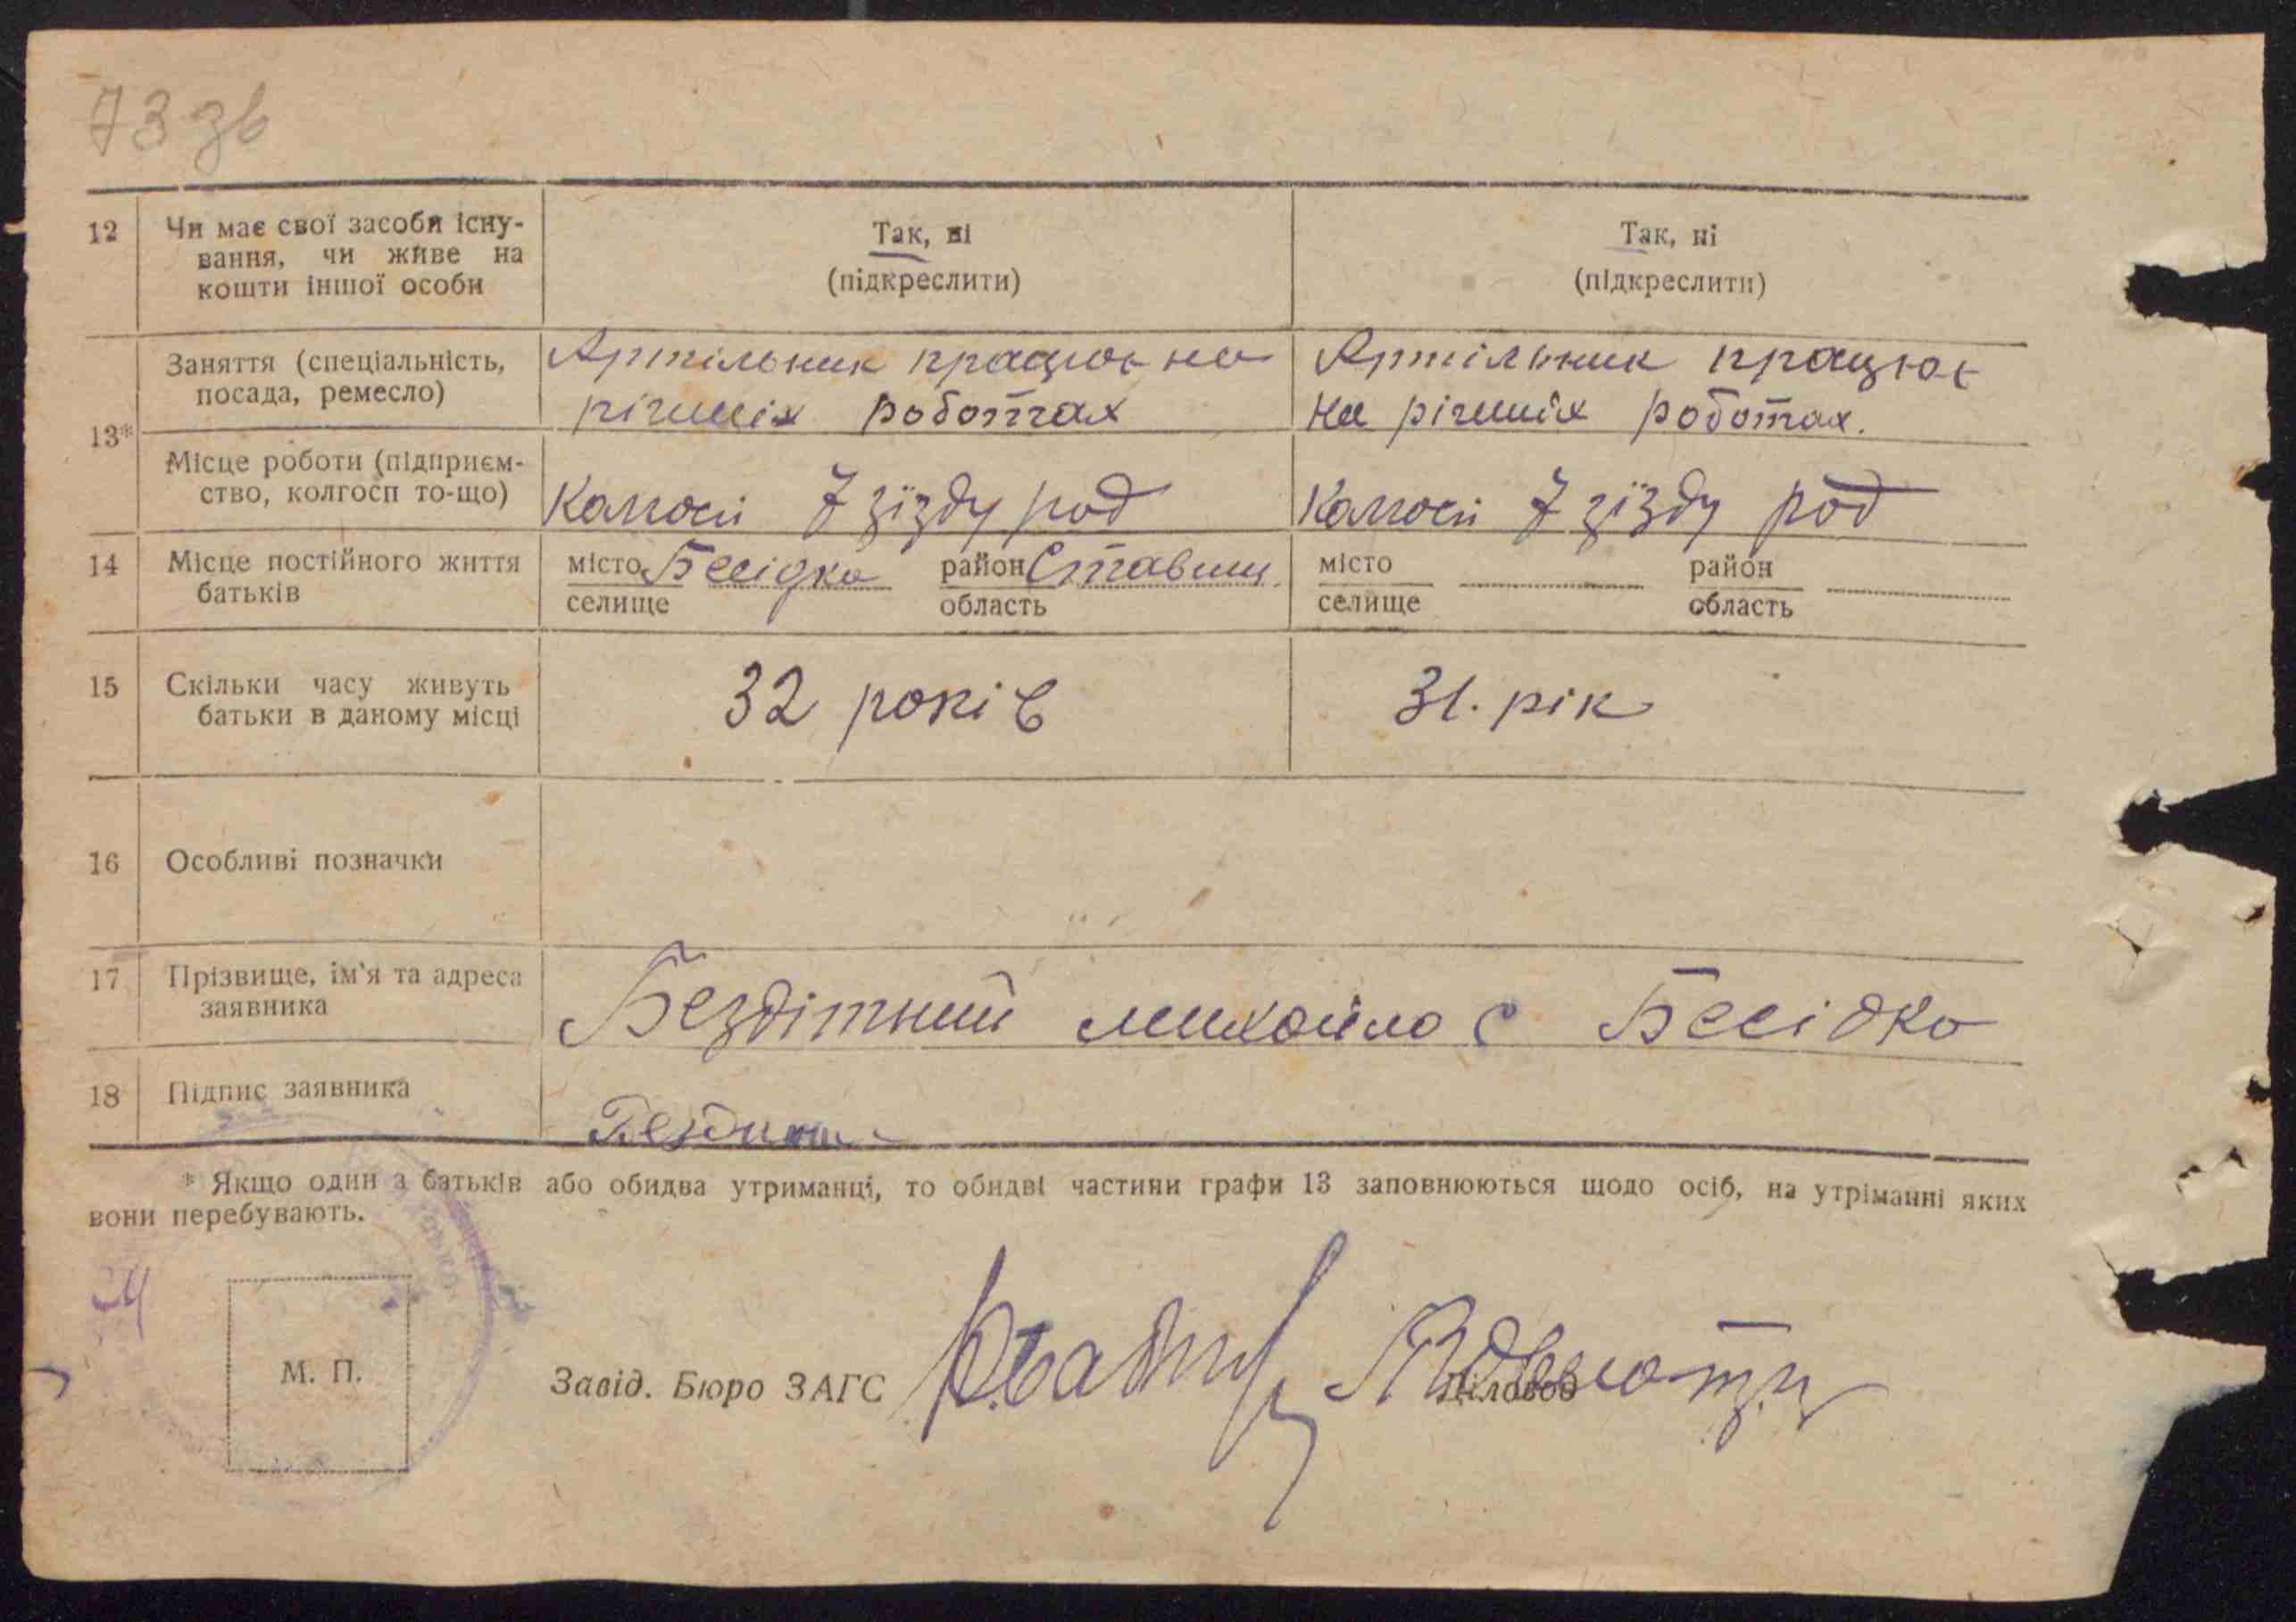 73 зв
12 Чи має свої засоби існу-
вання, чи живе на
кошти іншої особи
Так, ні
(підкреслити)
Так, ні
(підкреслити)
13*
Заняття (спеціальність,
посада, ремесло)
Артільник працює на
різших роботах
Артільник працює
на різших роботах.
Місце роботи (підприєм-
ство, колгосп то-що)
Колгосп 7 зїзду рад
Колгосп 7 зїзду рад
14 Місце постійного життя
батьків
місто Бесідка район Ставищ.
селище область
місто район
селище область
15 Скільки часу живуть
батьки в даному місці
32 років
31. рік
16 Особливі позначки
17 Прізвище, ім'я та адреса
заявника
Бездітний михайло с Бесідко
18 Підпис заявника
* Якщо один з батьків або обидва утриманці, то обидві частини графи 13 заповнюються щодо осіб, на утріманні яких
вони перебувають.
М. П.
Завід. Бюро ЗАГС
Діловод